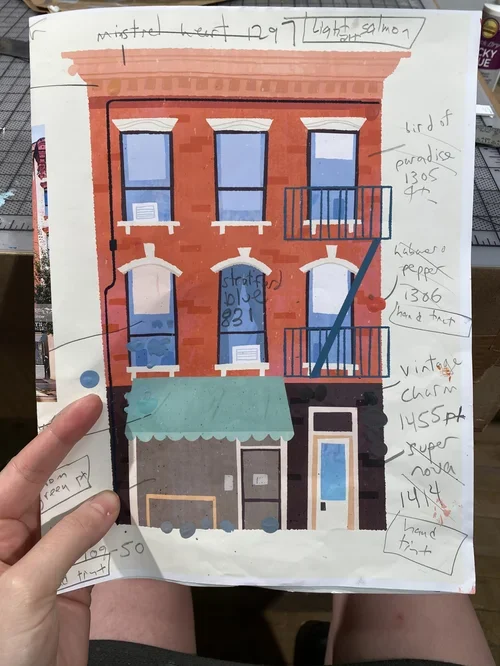 minstrel heart 1297
light salmon
bird of
paradise
1305
habanero
pepper
1306
hand tint
stratford
blue
831
vintage
charm
1455 pt
super
nova
1414
hand
tint
-50
tint